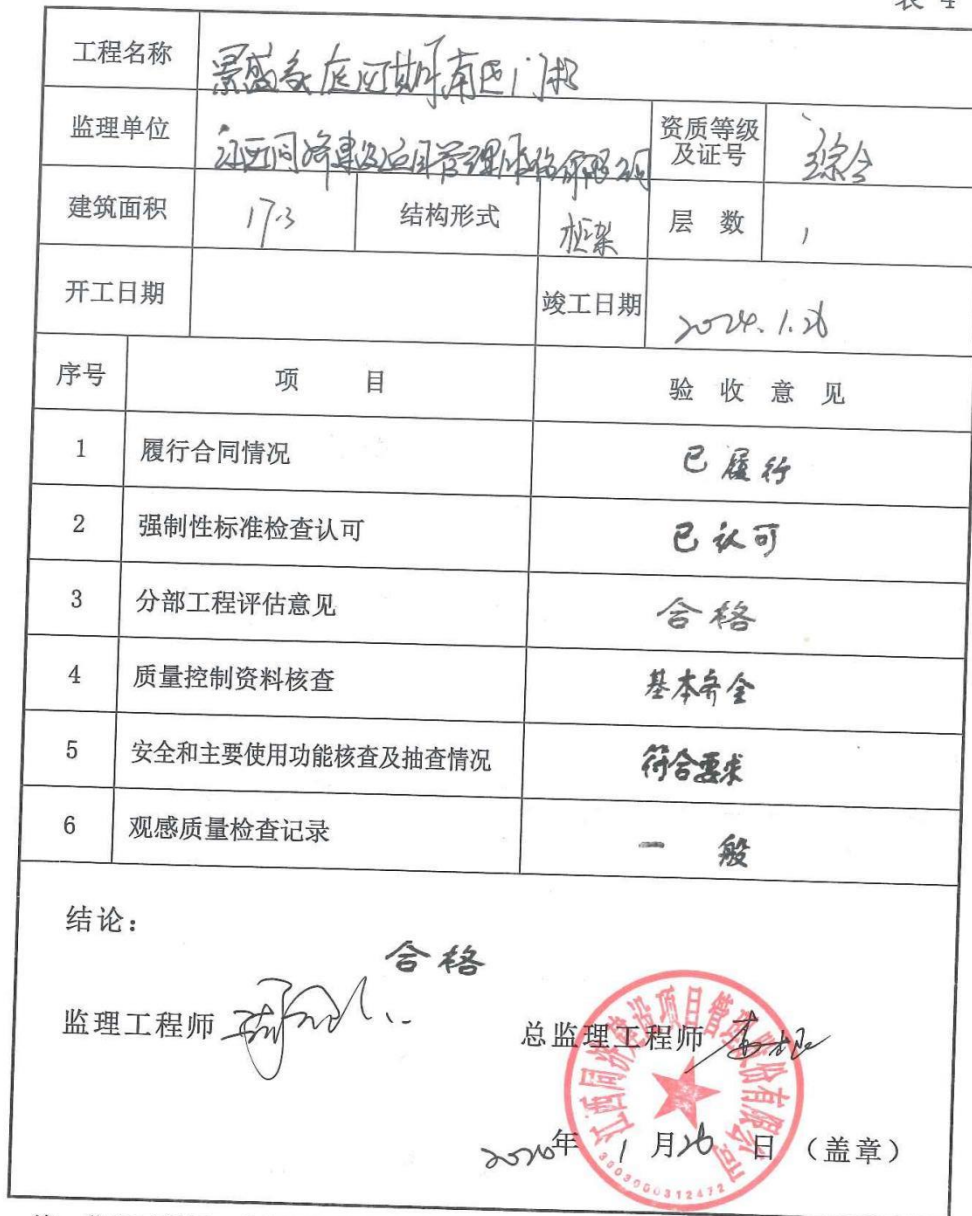 表 4
工程名称 景盛豪庭四期南区门楼
监理单位 江西同济建设项目管理股份有限公司 资质等级及证号 综合
建筑面积 17.3 结构形式 框架 层 数 1
开工日期 竣工日期 2024.1.26
序号 项 目 验 收 意 见
1 履行合同情况 已履行
2 强制性标准检查认可 已认可
3 分部工程评估意见 合格
4 质量控制资料核查 基本齐全
5 安全和主要使用功能核查及抽查情况 符合要求
6 观感质量检查记录 一般
结论：
合格
监理工程师 总监理工程师
江西同济建设项目管理股份有限公司
年 1 月 26 日 （盖章）